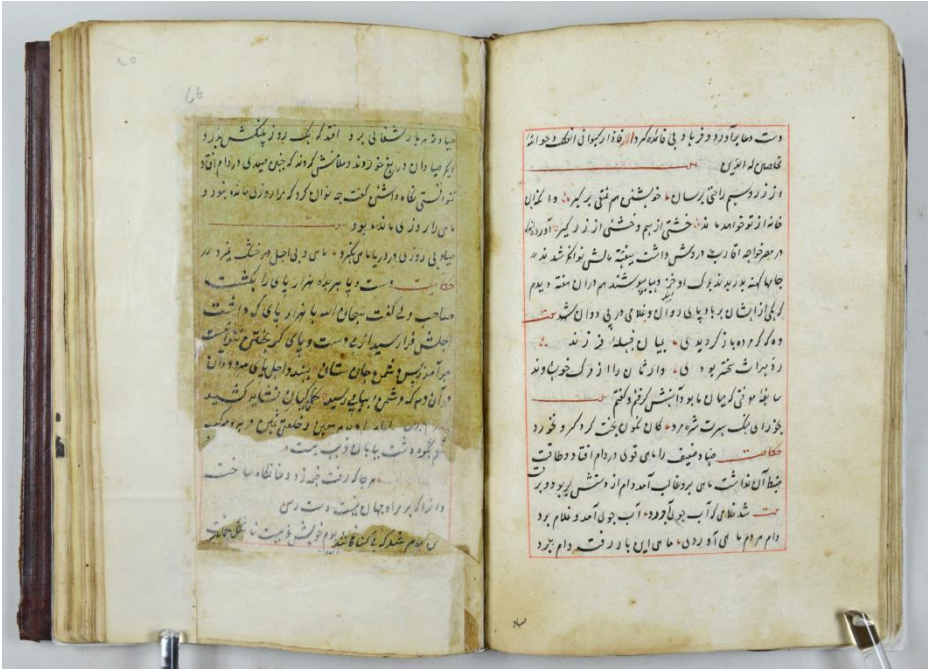 دست دعا برآورد و فریاد بی فائده کرد فاذا رکبوا فی الفلک دعوا الله
مخلصین له الدین
از زر و سیم راحتی برسان خویشتن هم تمتعی برگیر
خانه از تو خواهد ماند خشتی از سیم و خشتی از زر گیر آورده اند
در مصر خواجه اقارب درویش داشت ببقیه مالش توانگر شدند
جامها کهنه بدریدند بمرگ او خز و دیبا هم دران هفته دیدم
که یکی از ایشان بر بادپای روان و غلامی در پی دوان شد بیت
وه که گر مرده باز گردیدی بمیان قبیله و فرزند
رد میراث سختر بودی وارثان را از مرگ خویشاوند
سابقه موقتی که میان ما بود آستینش گرفتم و گفتم
بخور ای نیک سیرت سره مرد کان نگون بخت گرد کرد و نخورد
حکایت صیاد ضعیف را ماهی قوی در دام افتاد و طاقت
ضبط آن نداشت ماهی برو غالب آمد دام از دستش بربود و برفت
بیت شد غلامی که آب جوی آورد آب جوی آمد و غلام برد
دام هر بار ماهی آوردی ماهی این بار رفت دام ببرد
صیاد
صیاد نه هر بار شغالی برد افتد که یک روز پلنگش بدرد
دیگر صیادان دریغ خوردند و ملامتش کردند که چنین صیدی در دام افتاد
نتوانستی نگاه داشتن گفت چه توان کرد که مرا روزی نمانده بود و
ماهی را روزی مانده بود
صیاد بی روزی در دریا ماهی نگیرد ماهی بی اجل در خشک نمیرد
حکایت دست و پا بریده هزار پای را بکشت
صاحب دلی گفت سبحان الله با هزار پای که داشت
اجلش فرا رسید از بی دست و پای گریختن نتوانست
چو آمد ز پس دشمن جان ستان ببندد اجل پای مرد دوان
در آن دم که دشمن پیاپی رسید کمان کیانی نشاید کشید
بکوه و دشت بیابان غریب نیست
هر جا که رفت خیمه زد و خانکاه ساخت
وانرا که بر مراد جهان نیست دست رس